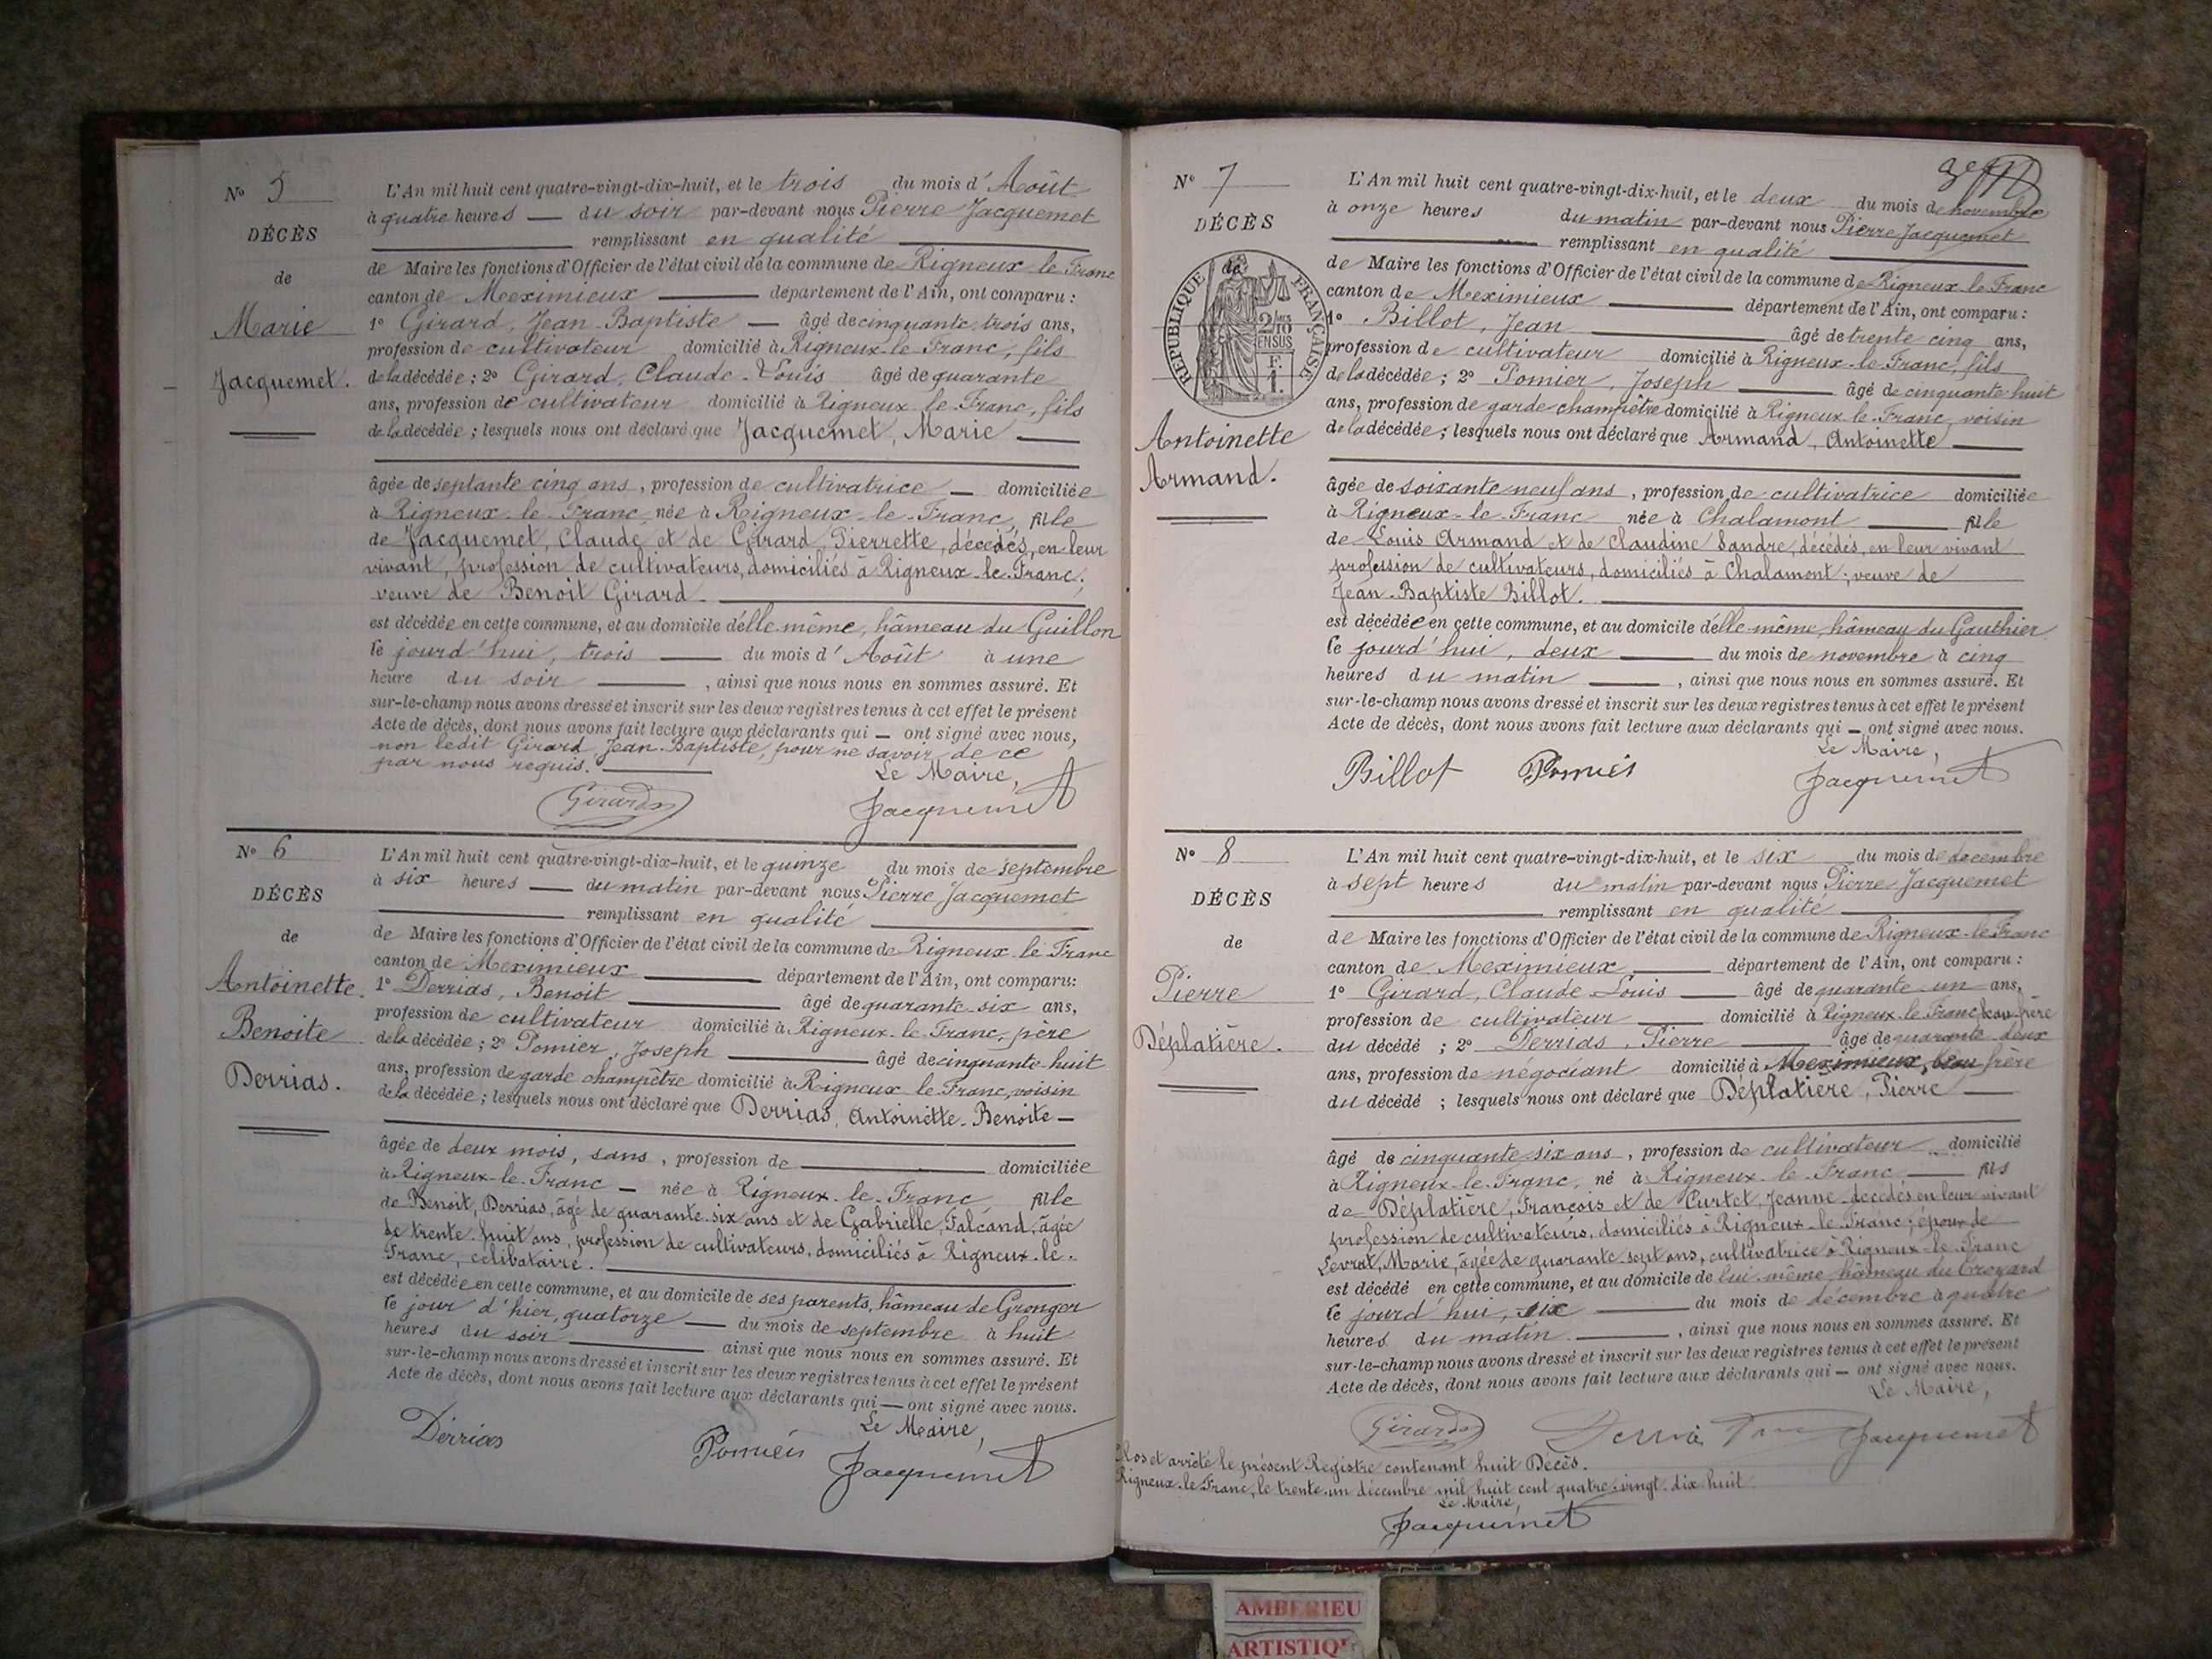 N° 5
DÉCÈS
de
Marie
Jacquemet.
L'An mil huit cent quatre-vingt-dix-huit, et le trois du mois d'Août
à quatre heures — du soir par-devant nous Pierre Jacquemet
remplissant en qualité
de Maire les fonctions d'Officier de l'état civil de la commune de Rigneux-le-Franc
canton de Meximieux département de l'Ain, ont comparu :
1° Girard, Jean-Baptiste — âgé de cinquante-trois ans,
profession de cultivateur domicilié à Rigneux-le-Franc, fils
de la décédée ; 2° Girard, Claude-Louis âgé de quarante
ans, profession de cultivateur domicilié à Rigneux-le-Franc, fils
de la décédée ; lesquels nous ont déclaré que Jacquemet, Marie —
âgée de septante cinq ans, profession de cultivatrice — domiciliée
à Rigneux-le-Franc, née à Rigneux-le-Franc, fille
de Jacquemet, Claude et de Girard Pierrette, décédés, en leur
vivant, profession de cultivateurs, domiciliés à Rigneux-le-Franc ;
veuve de Benoit Girard.
est décédée en cette commune, et au domicile d'elle-même, hâmeau du Guillon
le jourd'hui, trois — du mois d'Août à une
heure du soir —, ainsi que nous nous en sommes assuré. Et
sur-le-champ nous avons dressé et inscrit sur les deux registres tenus à cet effet le présent
Acte de décès, dont nous avons fait lecture aux déclarants qui — ont signé avec nous,
non ledit Girard Jean-Baptiste, pour ne savoir, de ce
par nous requis.
Le Maire,
Girard Jacquemet
N° 6
DÉCÈS
de
Antoinette
Benoite
Derrias.
L'An mil huit cent quatre-vingt-dix-huit, et le quinze du mois de septembre
à six heures — du matin par-devant nous Pierre Jacquemet
remplissant en qualité
de Maire les fonctions d'Officier de l'état civil de la commune de Rigneux-le-Franc
canton de Meximieux département de l'Ain, ont comparu :
1° Derrias, Benoit âgé de quarante-six ans,
profession de cultivateur domicilié à Rigneux-le-Franc, père
de la décédée ; 2° Pomier, Joseph âgé de cinquante-huit
ans, profession de garde champêtre domicilié à Rigneux-le-Franc, voisin
de la décédée ; lesquels nous ont déclaré que Derrias, Antoinette-Benoite —
âgée de deux mois, sans, profession de domiciliée
à Rigneux-le-Franc — née à Rigneux-le-Franc fille
de Benoit, Derrias, âgé de quarante-six ans et de Gabrielle, Falcand, âgée
de trente-huit ans, profession de cultivateurs, domiciliés à Rigneux-le-
Franc, célibataire.
est décédée en cette commune, et au domicile de ses parents, hâmeau de Gronger
le jour d'hier, quatorze — du mois de septembre à huit
heures du soir ainsi que nous nous en sommes assuré. Et
sur-le-champ nous avons dressé et inscrit sur les deux registres tenus à cet effet le présent
Acte de décès, dont nous avons fait lecture aux déclarants qui — ont signé avec nous.
Le Maire,
Dérrias Pomier Jacquemet
N° 7
DÉCÈS
de
RÉPUBLIQUE FRANÇAISE
2/10 EN SUS
F. 1.
Antoinette
Armand.
L'An mil huit cent quatre-vingt-dix-huit, et le deux du mois de novembre
à onze heures du matin par-devant nous Pierre Jacquemet
remplissant en qualité
de Maire les fonctions d'Officier de l'état civil de la commune de Rigneux-le-Franc
canton de Meximieux département de l'Ain, ont comparu :
1° Billot, Jean âgé de trente cinq ans,
profession de cultivateur domicilié à Rigneux-le-Franc, fils
de la décédée ; 2° Pomier, Joseph âgé de cinquante-huit
ans, profession de garde-champêtre domicilié à Rigneux-le-Franc, voisin
de la décédée ; lesquels nous ont déclaré que Armand, Antoinette
âgée de soixante neuf ans, profession de cultivatrice domiciliée
à Rigneux-le-Franc née à Chalamont fille
de Louis Armand et de Claudine Sandre, décédés, en leur vivant
profession de cultivateurs, domiciliés à Chalamont ; veuve de
Jean-Baptiste Billot.
est décédée en cette commune, et au domicile d'elle-même, hâmeau du Gauthier
le jourd'hui, deux du mois de novembre à cinq
heures du matin, ainsi que nous nous en sommes assuré. Et
sur-le-champ nous avons dressé et inscrit sur les deux registres tenus à cet effet le présent
Acte de décès, dont nous avons fait lecture aux déclarants qui — ont signé avec nous.
Le Maire,
Billot Pomier Jacquemet
N° 8
DÉCÈS
de
Pierre
Déplatière.
L'An mil huit cent quatre-vingt-dix-huit, et le six du mois de decembre
à sept heures du matin par-devant nous Pierre Jacquemet
remplissant en qualité
de Maire les fonctions d'Officier de l'état civil de la commune de Rigneux-le-Franc
canton de Meximieux département de l'Ain, ont comparu :
1° Girard, Claude-Louis — âgé de quarante-un ans,
profession de cultivateur domicilié à Rigneux-le-Franc, beau-frère
du décédé ; 2° Derrias, Pierre âgé de quarante-deux
ans, profession de négociant domicilié à Meximieux, beau-frère
du décédé ; lesquels nous ont déclaré que Déplatière, Pierre
âgé de cinquante-six ans, profession de cultivateur domicilié
à Rigneux-le-Franc, né à Rigneux-le-Franc fils
de Déplatière, François et de Curtet, Jeanne décédés en leur vivant
profession de cultivateurs, domiciliés à Rigneux-le-Franc ; époux de
Levrat, Marie, âgée de quarante-sept ans, cultivatrice à Rigneux-le-Franc
est décédé en cette commune, et au domicile de lui-même, hâmeau du
le jourd'hui, six du mois de décembre à quatre
heures du matin, ainsi que nous nous en sommes assuré. Et
sur-le-champ nous avons dressé et inscrit sur les deux registres tenus à cet effet le présent
Acte de décès, dont nous avons fait lecture aux déclarants qui — ont signé avec nous.
Le Maire,
Girard Jacquemet
Clos et arrêté le présent Registre contenant huit Décès.
Rigneux-le-Franc, le trente-un décembre mil huit cent quatre-vingt-dix-huit
Le Maire,
Jacquemet
AMBERIEU
ARTISTIQU